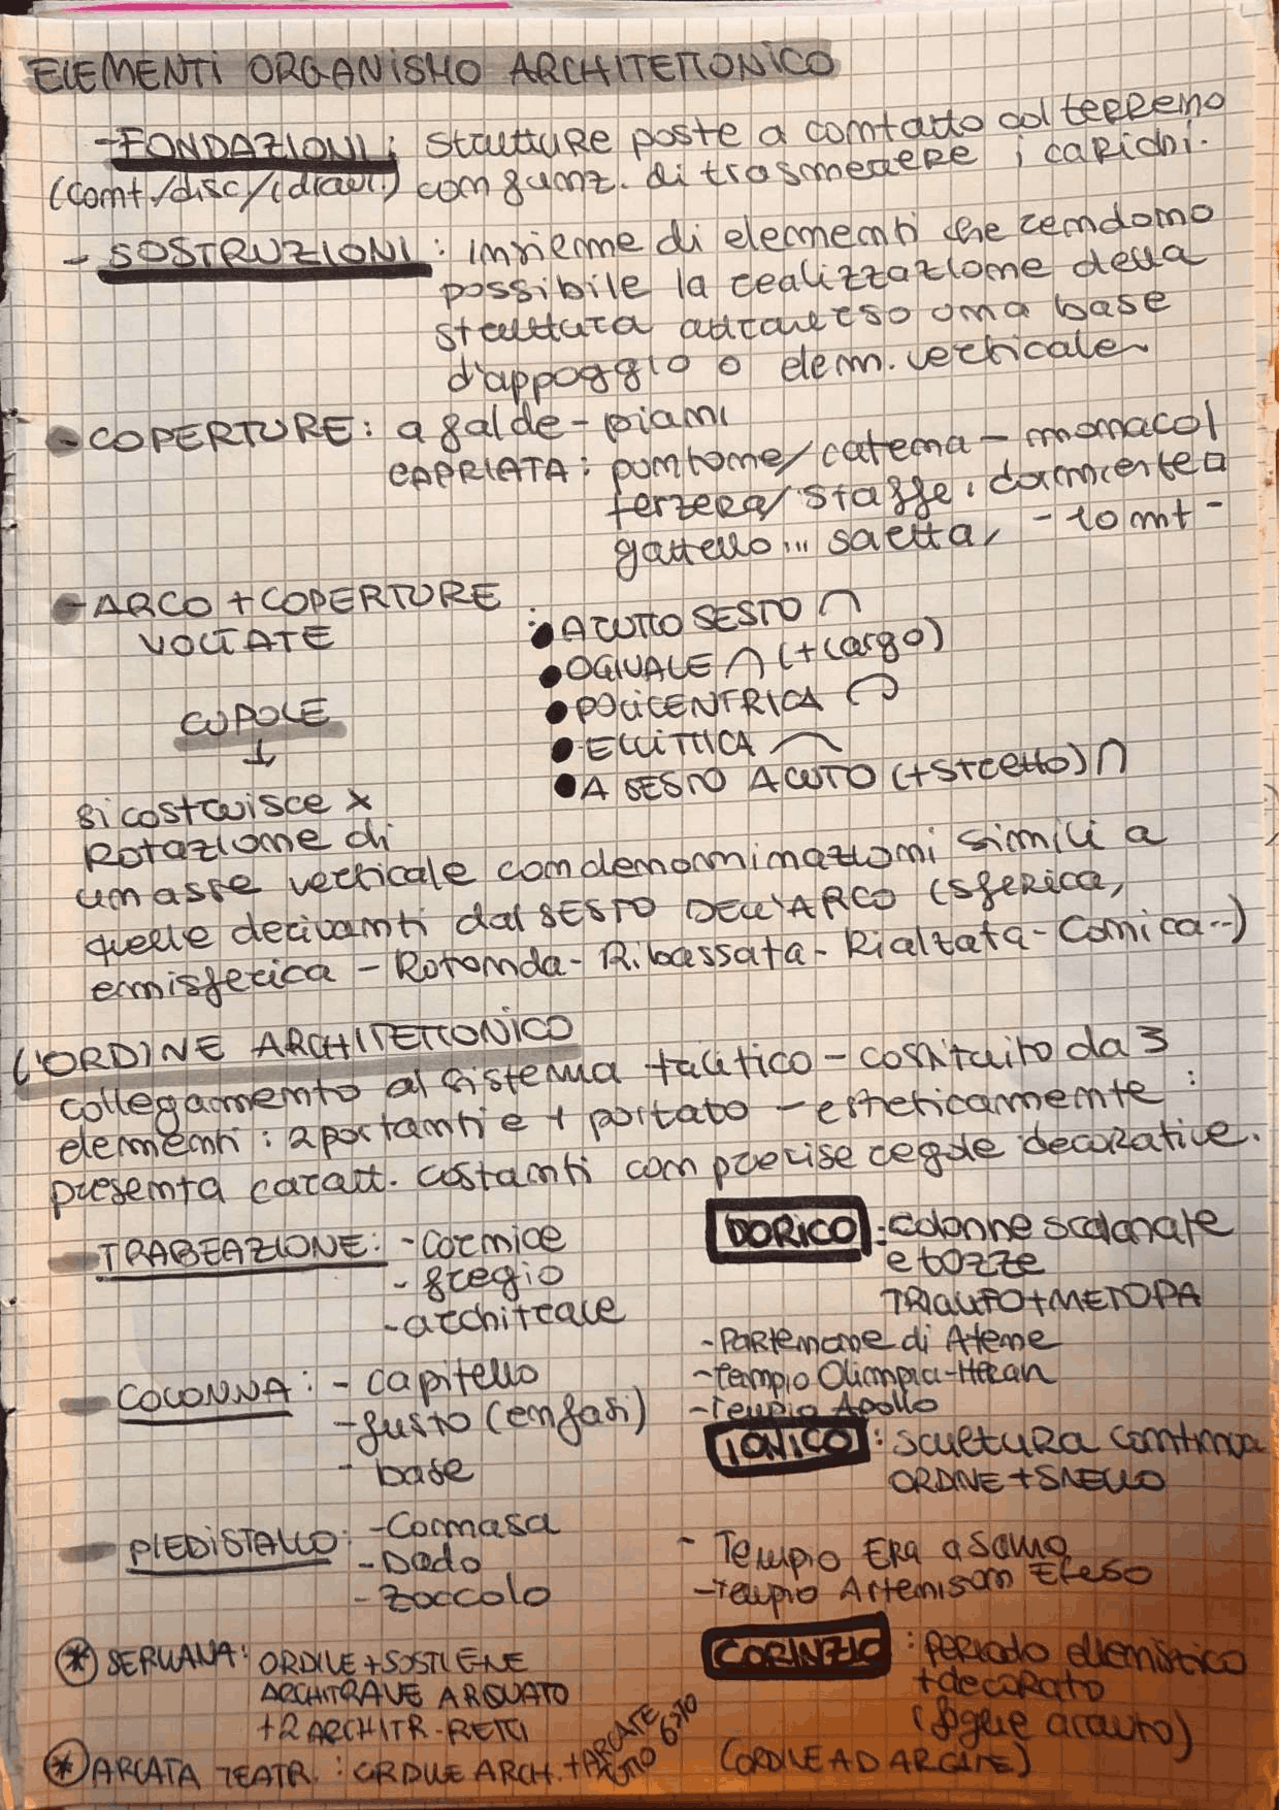 ELEMENTI ORGANISMO ARCHITETTONICO
- FONDAZIONI: strutture poste a contatto col terreno
(cont./disc/idraul.) con funz. di trasmettere i carichi.
- SOSTRUZIONI: insieme di elementi che rendono
possibile la realizzazione della
struttura attraverso una base
d'appoggio o elem. verticale
- COPERTURE: a falde - piani
CAPRIATA: puntone/catena - monaco/
terzera/staffe, dormiente
gattello... saetta, - 10 mt -
- ARCO + COPERTURE
VOLTATE
: A TUTTO SESTO
OGIVALE (+largo)
POLICENTRICA
ELLITTICA
A SESTO ACUTO (+stretto)
CUPOLE
↓
si costruisce x
Rotazione di
un asse verticale con denominazioni simili a
quelle derivanti dal SESTO DELL'ARCO (sferica,
emisferica - Rotonda - Ribassata - Rialzata - Conica..)
L'ORDINE ARCHITETTONICO
collegamento al sistema trilitico - costituito da 3
elementi: 2 portanti e 1 portato - esteticamente:
presenta caratt. costanti con precise regole decorative.
- TRABEAZIONE: - cornice
- fregio
- architrave
- COLONNA: - capitello
- fusto (enfasi)
- base
- PIEDISTALLO: - Cornasa
- Dado
- Zoccolo
* SERLIANA: ORDINE + SOSTIENE
ARCHITRAVE ARQUATO
+ 2 ARCHITR. RETTI
* ARCATA TEATR.: ORDINE ARCH. + ARCATE
DORICO: - colonne scalanate
e tozze
TRIGLIFO + METOPA
- Partenone di Atene
- Tempio Olimpia - Heran
- Tempio Apollo
IONICO: scultura continua
ORDINE + SNELLO
- Tempio Era a Samo
- Tempio Artemision Efeso
CORINZIO: periodo ellenistico
+ decorato
(foglie acanto)
(ORDINE AD ARCATE)